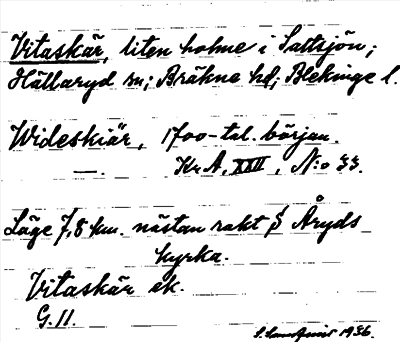 Vitaskär, liten holme i Saltsjön;
Hällaryd sn; Bräkne hd; Blekinge l.
Wideskiär, 1700-tal. början.
—. Kr A, XXII, N:o 33.
Läge 7,8 km. nästan rakt S Åryds
kyrka.
Vitaskär ek.
G. 11.
1936.